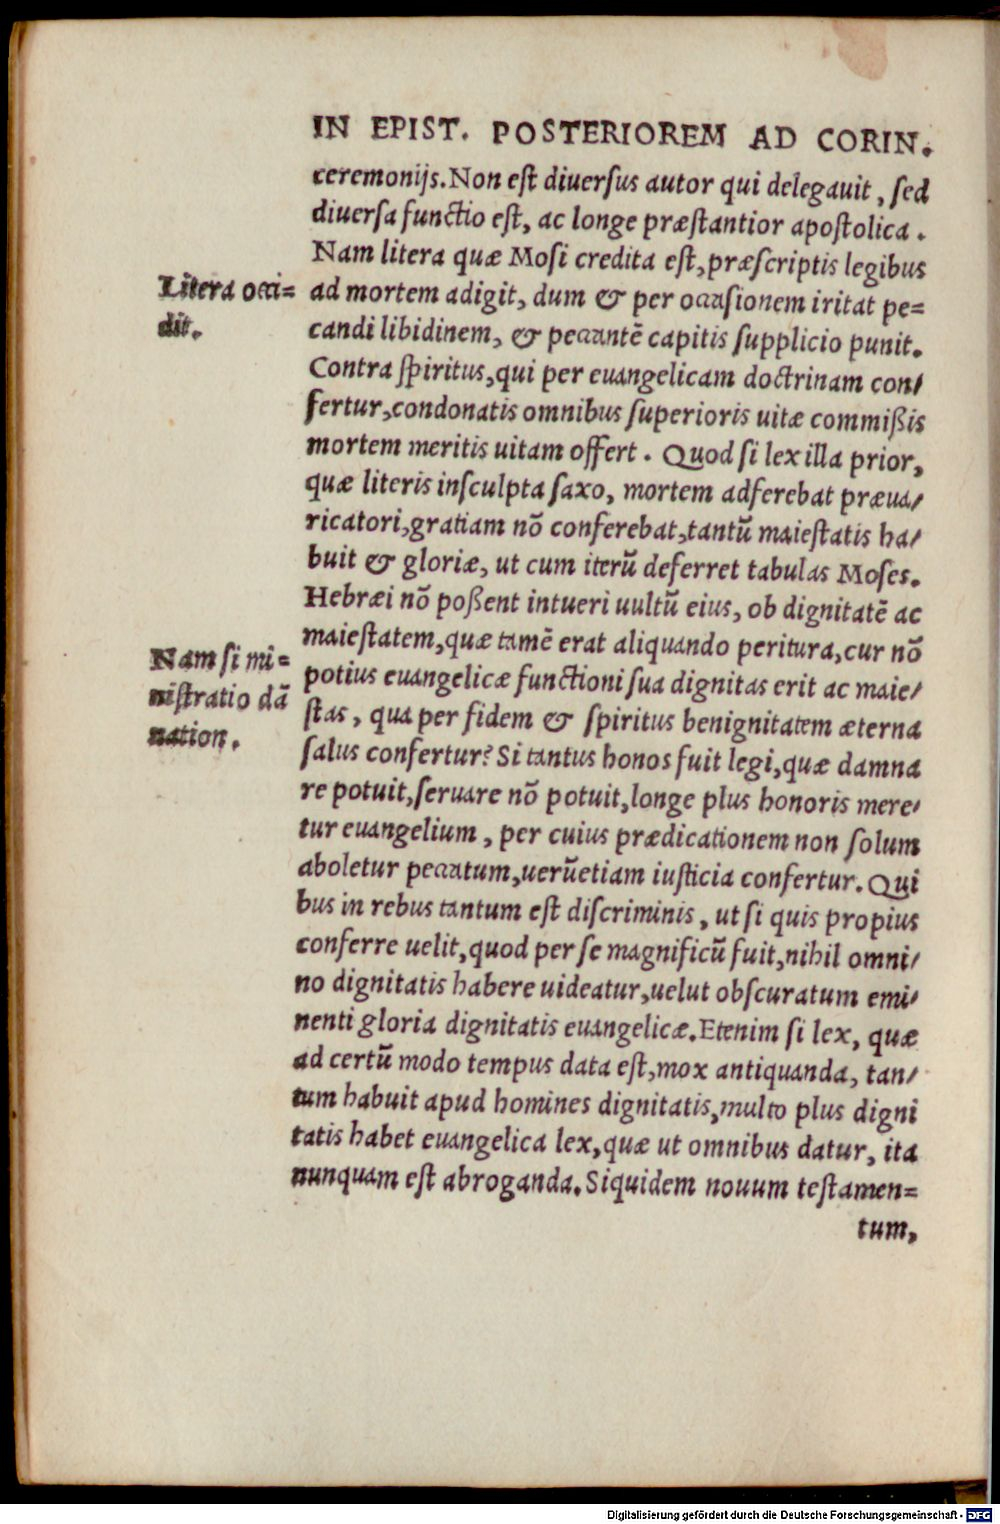 IN EPIST. POSTERIOREM AD CORIN.
ceremonijs. Non est diuersus autor qui delegauit, sed
diuersa functio est, ac longe præstantior apostolica.
Nam litera quæ Mosi credita est, præscriptis legibus
Litera occi=
dit.
ad mortem adigit, dum & per occasionem iritat pe=
candi libidinem, & peccantē capitis supplicio punit.
Contra spiritus, qui per euangelicam doctrinam con/
fertur, condonatis omnibus superioris uitæ commißis
mortem meritis uitam offert. Quod si lex illa prior,
quæ literis insculpta saxo, mortem adferebat præua/
ricatori, gratiam nō conferebat, tantū maiestatis ha/
buit & gloriæ, ut cum iterū deferret tabulas Moses.
Hebræi nō poßent intueri uultū eius, ob dignitatē ac
maiestatem, quæ tamē erat aliquando peritura, cur nō
Nam si mi=
nistratio dā
nation.
potius euangelicæ functioni sua dignitas erit ac maie/
stas, qua per fidem & spiritus benignitatem æterna
salus confertur? Si tantus honos fuit legi, quæ damna
re potuit, seruare nō potuit, longe plus honoris mere/
tur euangelium, per cuius prædicationem non solum
aboletur peccatum, uerūetiam iusticia confertur. Qui
bus in rebus tantum est discriminis, ut si quis propius
conferre uelit, quod per se magnificū fuit, nihil omni/
no dignitatis habere uideatur, uelut obscuratum emi/
nenti gloria dignitatis euangelicæ. Etenim si lex, quæ
ad certū modo tempus data est, mox antiquanda, tan/
tum habuit apud homines dignitatis, multo plus digni
tatis habet euangelica lex, quæ ut omnibus datur, ita
nunquam est abroganda. Siquidem nouum testamen=
tum,
Digitalisierung gefördert durch die Deutsche Forschungsgemeinschaft - DFG